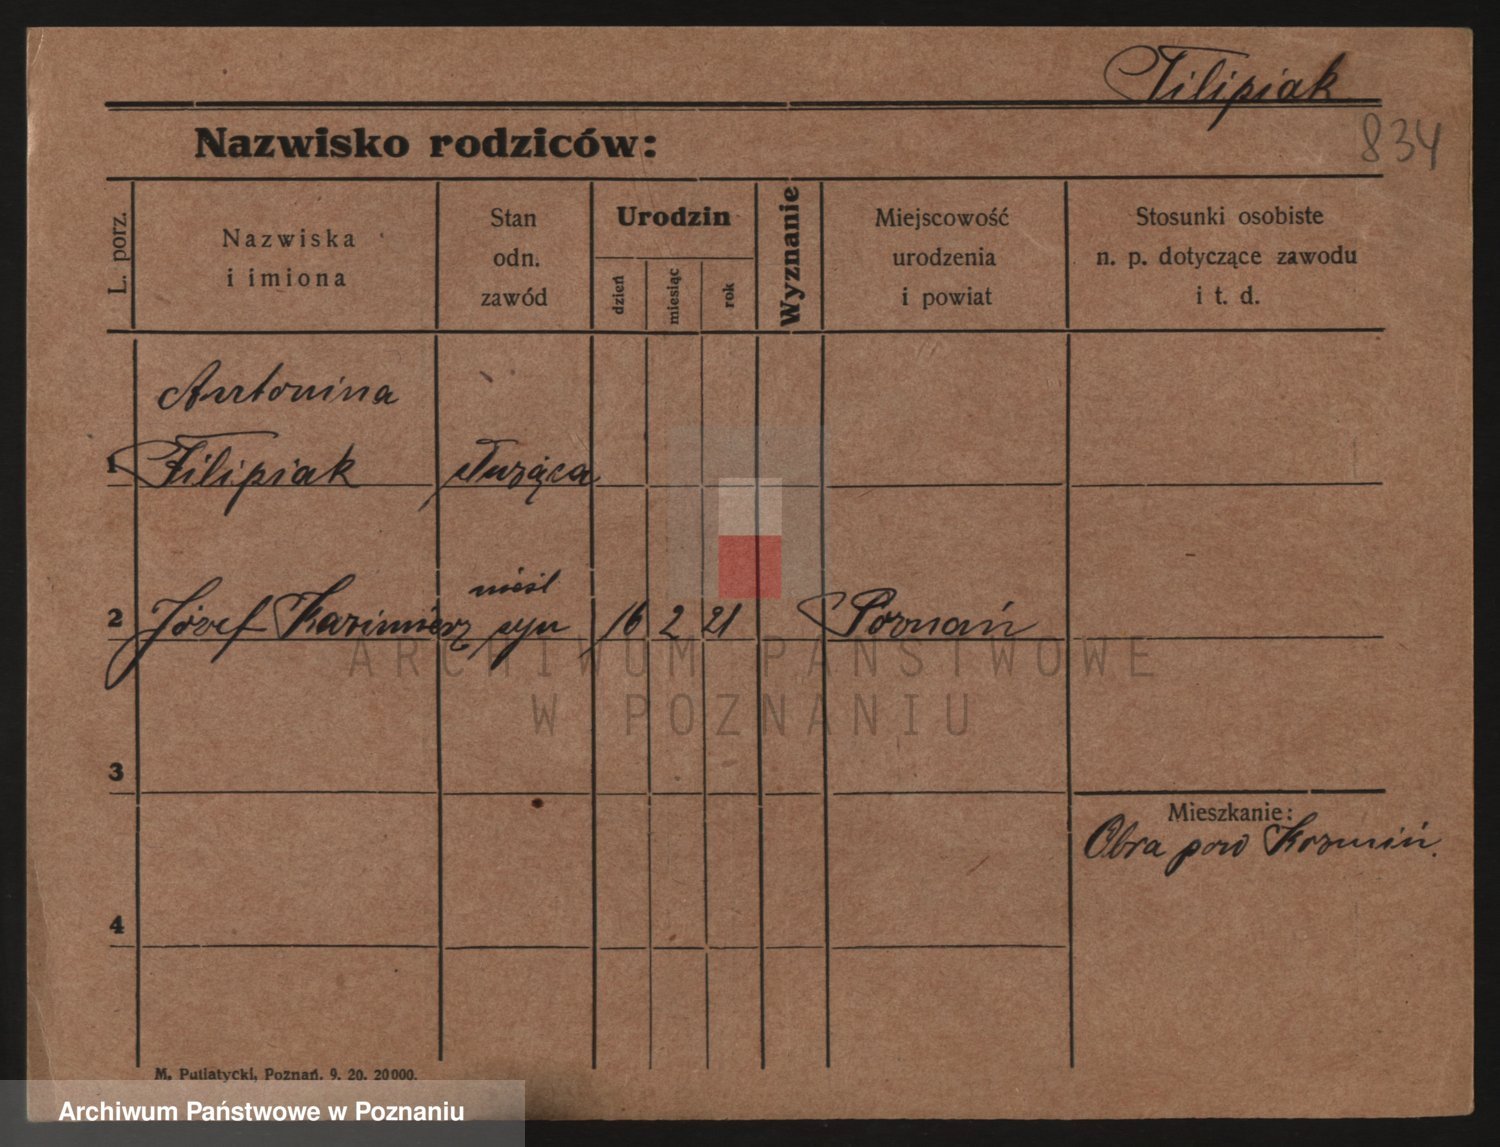 Filipiak
834
Nazwisko rodziców:
L. porz.
Nazwiska
i imiona
Stan
odn.
zawód
Urodzin
dzień
miesiąc
rok
Wyznanie
Miejscowość
urodzenia
i powiat
Stosunki osobiste
n. p. dotyczące zawodu
i t. d.
Antonina
1 Filipiak służąca
nieśl
2 Józef Kazimierz syn 16 2 21 Poznań
ARCHIWUM PAŃSTWOWE
W POZNANIU
3
Mieszkanie:
Obra pow Kozmiń.
4
M. Putiatycki, Poznań. 9. 20. 20000.
Archiwum Państwowe w Poznaniu